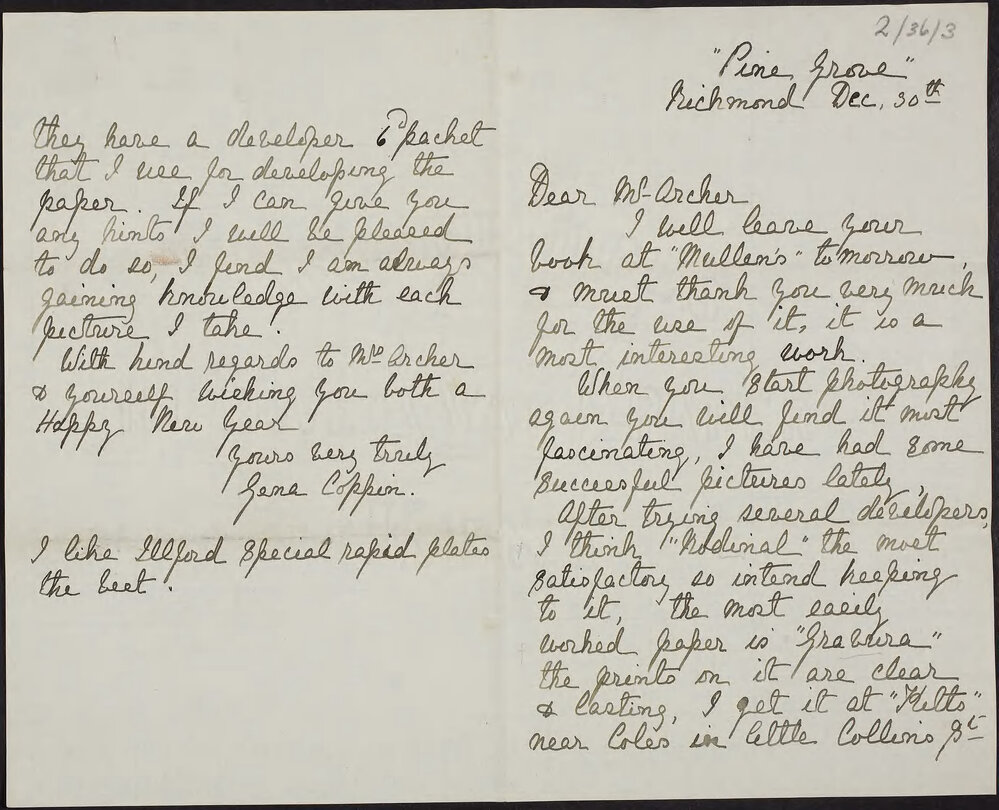 2/36/3
"Pine Grove"
Richmond Dec. 30th
Dear Mr Archer
I will leave your
book at "Mullens" tomorrow,
& must thank you very much
for the use of it, it is a
most interesting work.
When you start photography
again you will find it most
fascinating, I have had some
successful pictures lately,
After trying several developers,
I think "Rodinal" the most
satisfactory so intend keeping
to it, the most easily
worked paper is "Gravura"
the prints on it are clear
& lasting, I get it at "Kitts"
near Coles in Little Collins St
they have a developer 6d packet
that I use for developing the
paper. If I can give you
any hints I will be pleased
to do so, I find I am always
gaining knowledge with each
picture I take.
With kind regards to Mrs Archer
& yourself wishing you both a
Happy New Year
Yours very truly
Gena Coppin.
I like Illford Special rapid plates
the best.